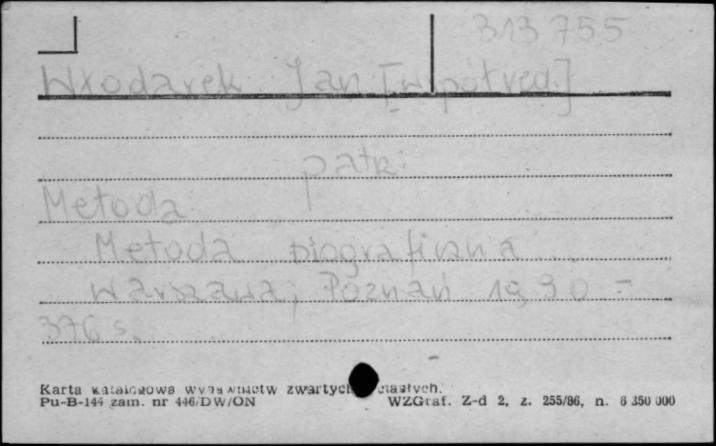 313 755
Włodarek Jan [współred.]
patrz:
Metoda
Metoda biograficzna ...
Warszawa; Poznań 1990 -
376 s.
Karta katalogowa wydawnictw zwartych i ciągłych.
Pu-B-144 zam. nr 446/DW/ON WZGraf. Z-d 2, z. 255/86, n. 6 350 000